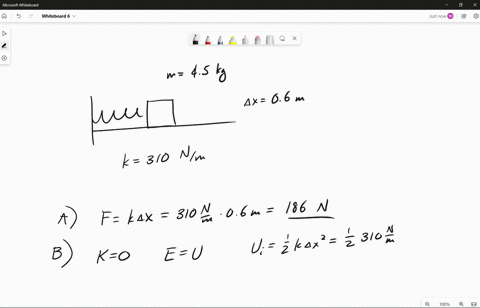 Microsoft Whiteboard
Whiteboard 6
Just now
m = 4.5 kg
Δx = 0.6 m
k = 310 N/m
A) F = kΔx = 310 N/m · 0.6 m = 186 N
B) K=0 E=U U_i = 1/2 kΔx² = 1/2 310 N/m
100%